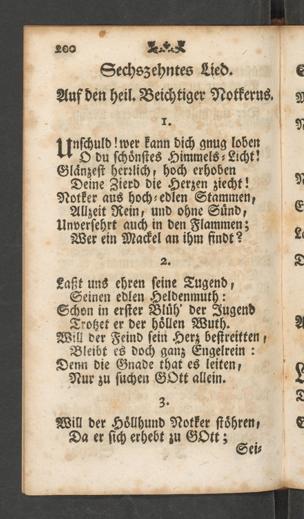 200
Sechszehntes Lied.
Auf den heil. Beichtiger Notkerus.
1.
Unschuld! wer kann dich gnug loben
O du schönstes Himmels-Licht!
Glänzest herzlich, hoch erhoben
Deine Zierd die Herzen ziecht!
Notker aus hoch-edlen Stammen,
Allzeit Rein, und ohne Sünd,
Unversehrt auch in den Flammen;
Wer ein Mackel an ihm findt?
2.
Laßt uns ehren seine Tugend,
Seinen edlen Heldenmuth:
Schon in erster Blüh' der Jugend
Trotzet er der höllen Wuth.
Will der Feind sein Herz bestreitten,
Bleibt es doch ganz Engelrein:
Denn die Gnade that es leiten,
Nur zu suchen GOtt allein.
3.
Will der Höllhund Notker stöhren,
Da er sich erhebt zu GOtt;
Sei-